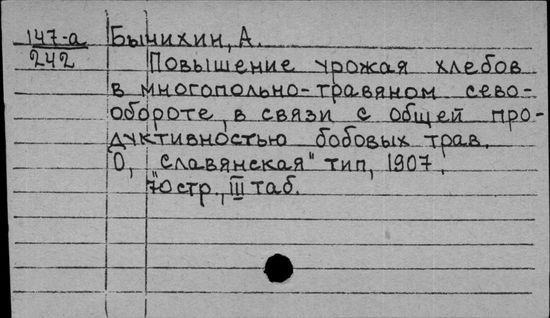 147-а
242
Бычихин, А.
Повышение урожая хлебов
в многопольно-травяном сево-
обороте, в связи с общей про-
дуктивностью бобовых трав.
О, „славянская" тип, 1907.
70 стр., III таб.